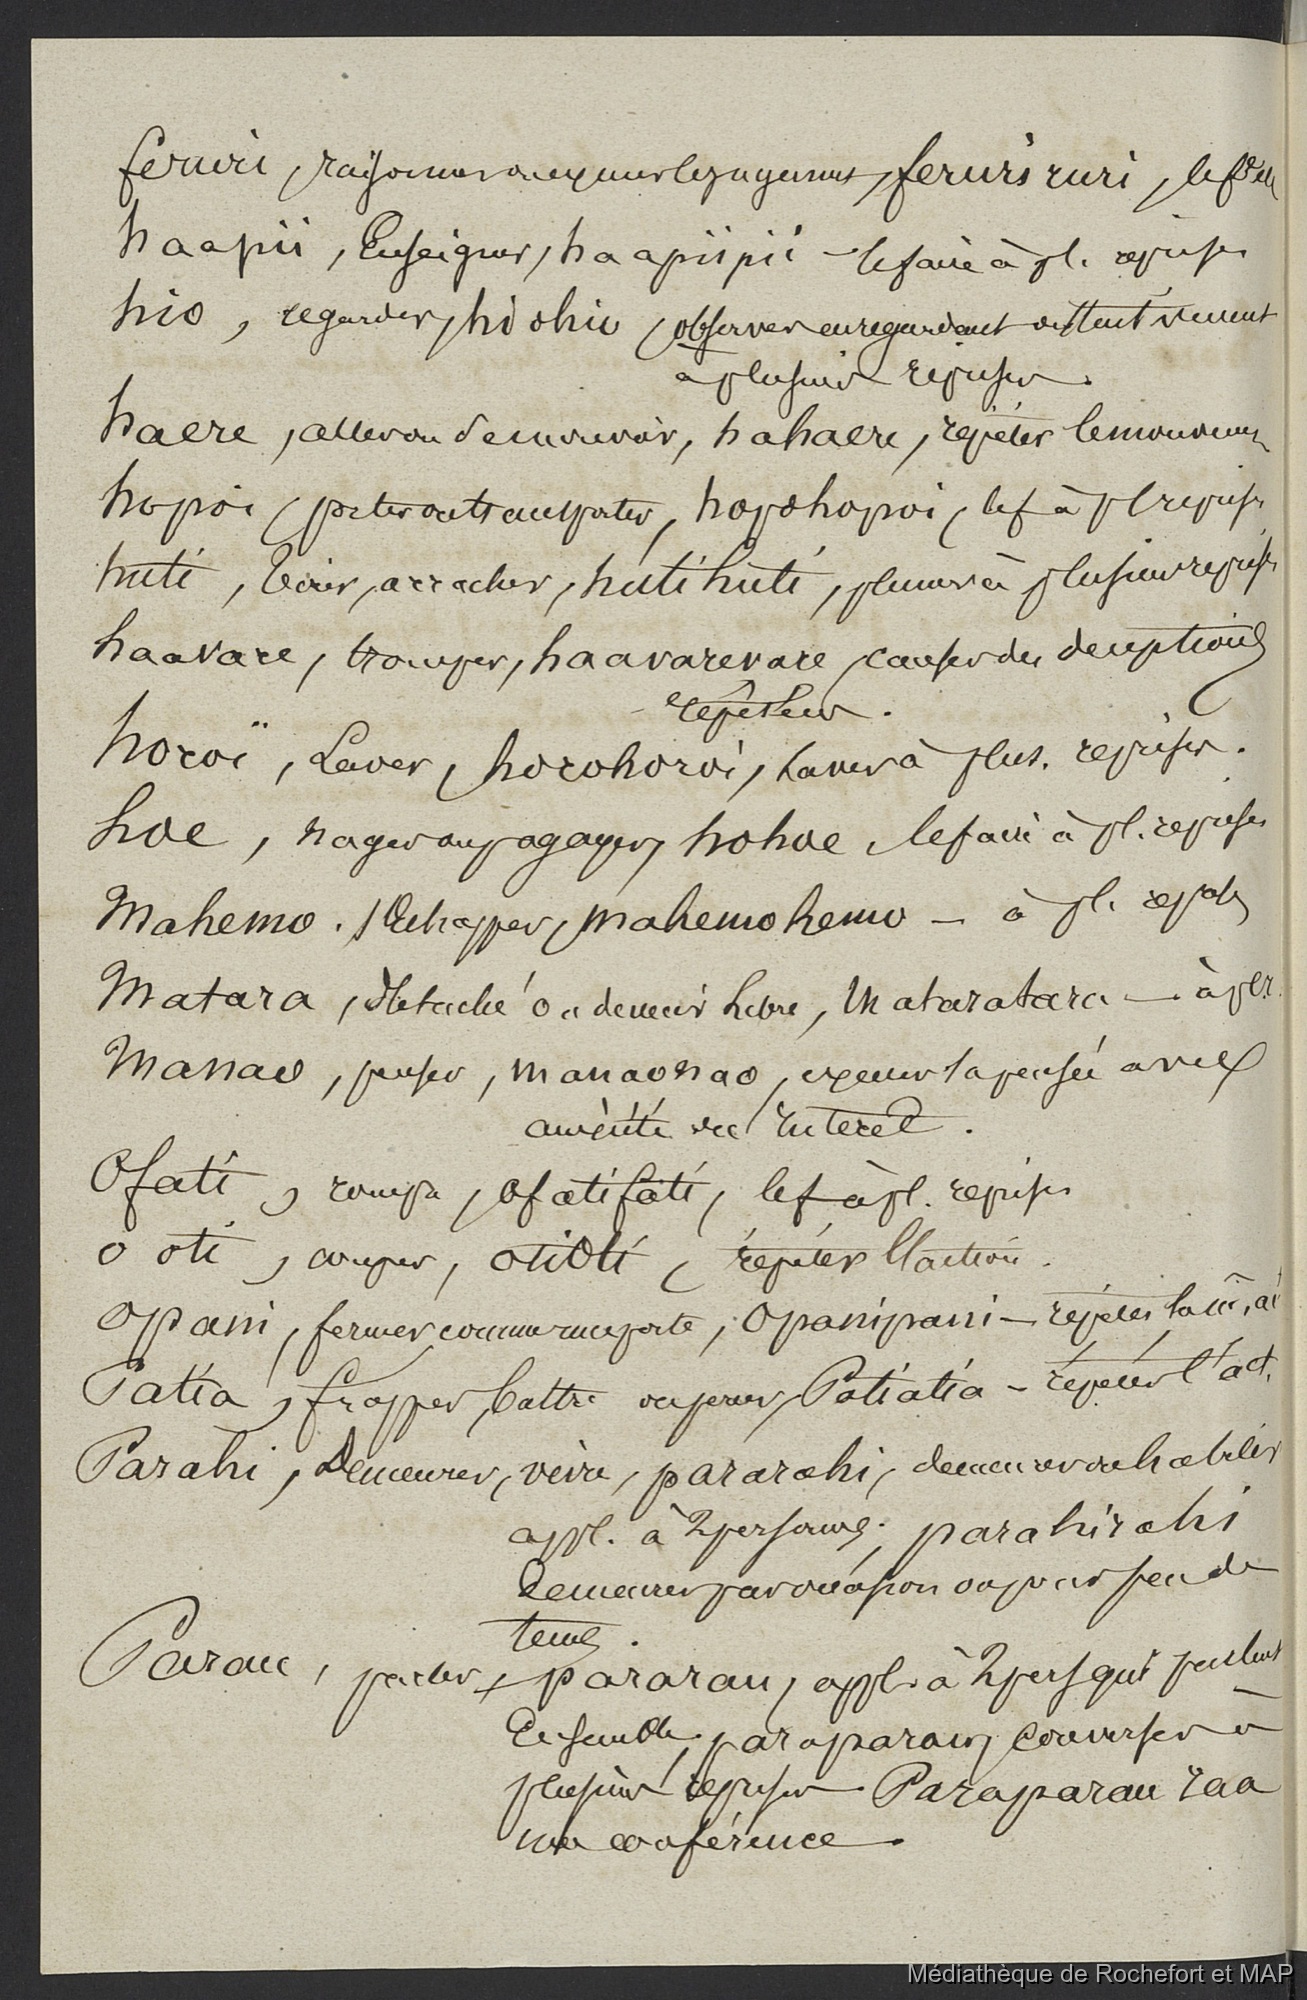 feruri, raisonner ou exprimer les jugements, feruri ruri, le f
haapii, Enseigner, haapiipii le faire à pl. reprises
hio, regarder, hiohio, observer en regardant attentivement
à plusieurs reprises.
haere, aller ou se mouvoir, hahaere, répéter le mouvement
hopoi, porter ou transporter, hopohopoi, le f à pl reprises
huti, tirer, arracher, hutihuti, plumer à plusieurs reprises
haavare, tromper, haavarevare, causer des deceptions
répétées.
horoï, Laver, horohoroi, Laver à plus. reprises.
hoe, nager ou pagayer, hohoe, le faire à pl. reprises
Mahemo. s'Echapper, mahemohemo — à pl. reprises
Matara, détaché ou devenir libre, Mataratara — à pl r.
Manao, penser, manaonao, exprimer la pensée avec
anxiété ou interet.
Ofati, rompre, ofatifati, le f à pl. reprises
o oti, couper, otioti, répéter l'action.
opani, fermer comme une porte, opanipani — répéter la m. ac
Patia, frapper, battre ou percer, Patiatia - répéter l'act.
Parahi, Demeurer, vivre, pararahi, demeurer ou habiter
appl. à 2 personnes; parahirahi
Demeurer par occasion ou pour peu de
temps.
Parau, parler, pararau, appl. à 2 pers qui parlent
Ensemble, paraparau, converser à
plusieurs reprises Paraparau raa
une conférence.
Médiathèque de Rochefort et MAP